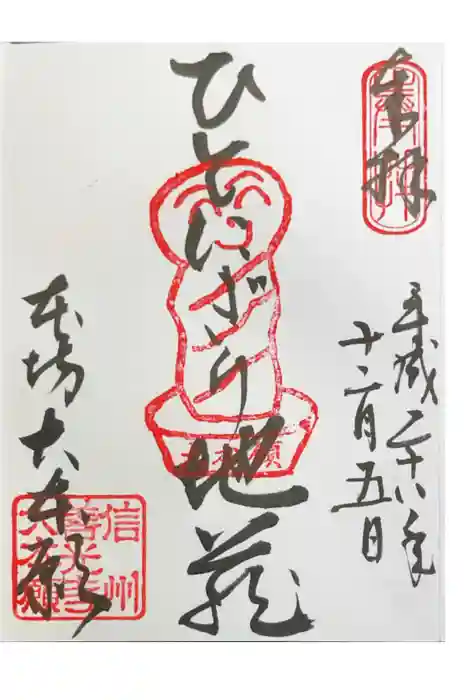 奉拝
奉拝
平成二十八年
十二月五日
ひとにぎり地蔵
大本願
本坊 大本願
信州
善光寺
大本願